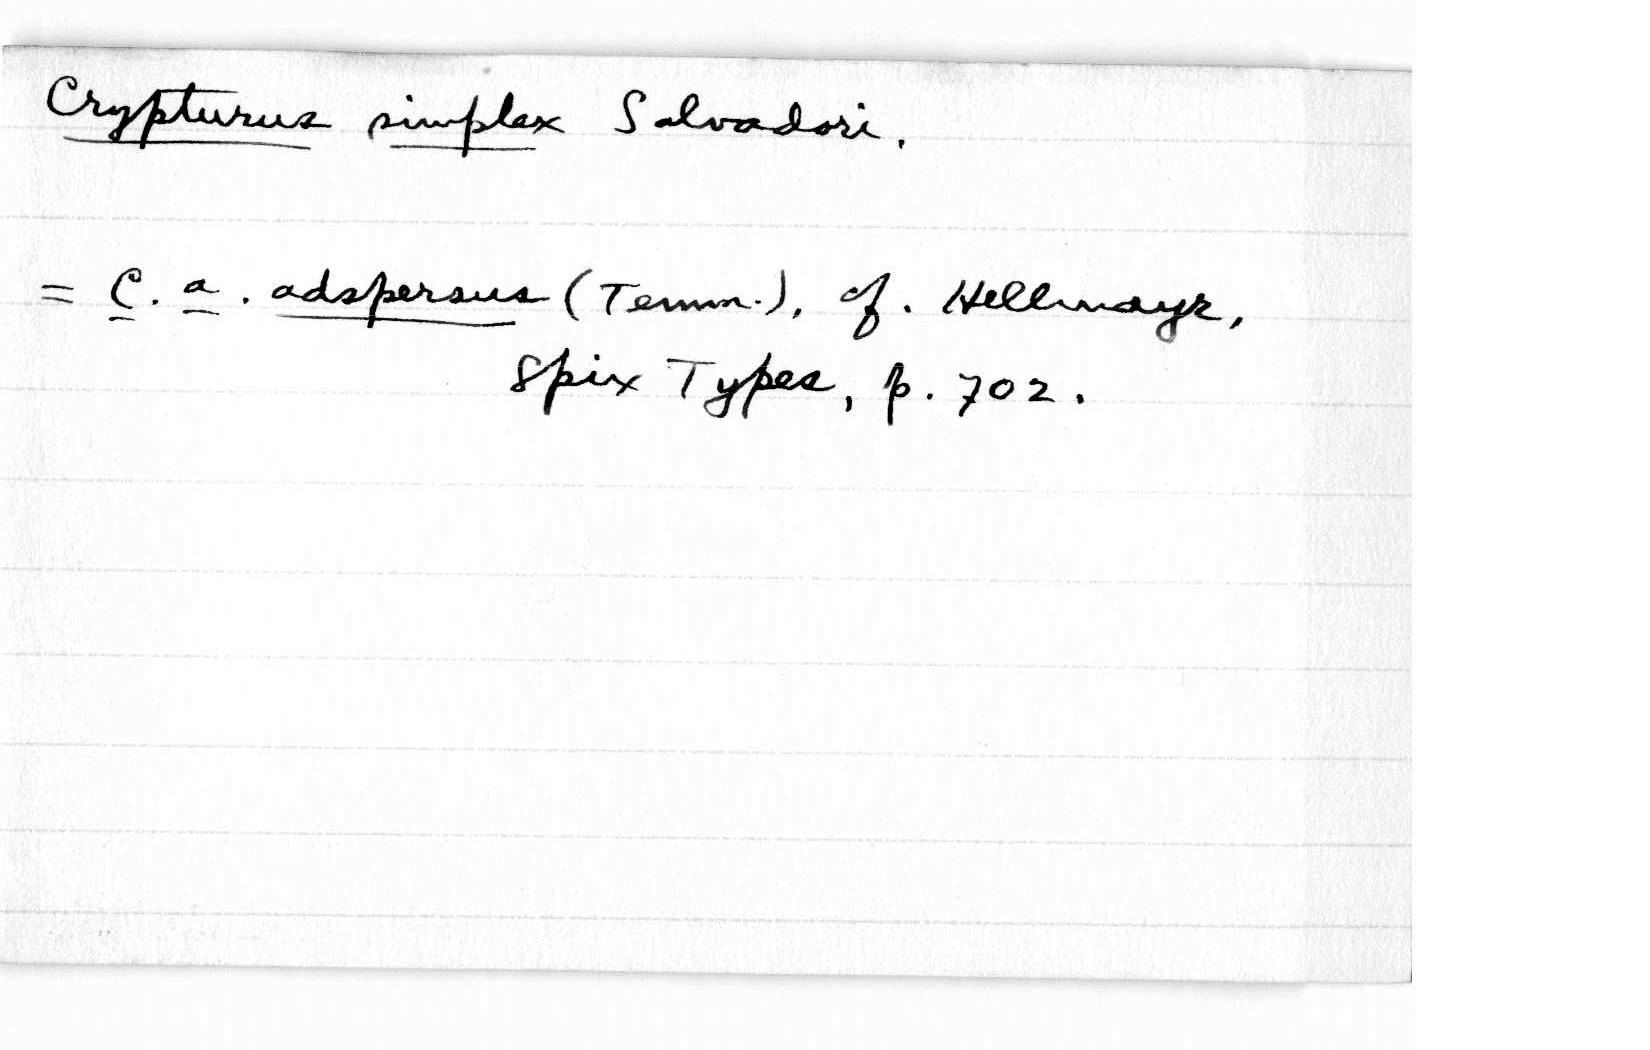 Crypturus simplex Salvadori.
= C. a. adspersus (Temm.), cf. Hellmayr,
Spix Types, p. 702.